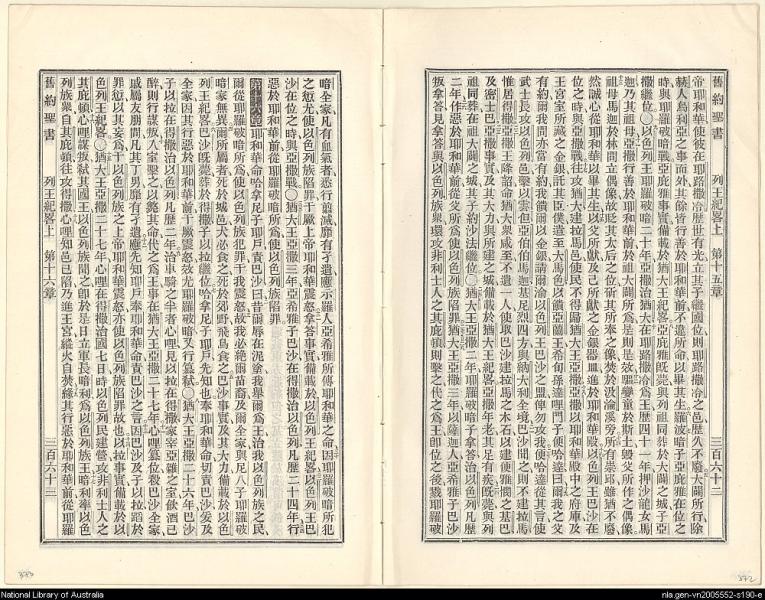 舊約聖書 列王紀畧上 第十五章 三百六十二
帝耶和華使彼在耶路撒冷歷世有光立其子繼國位則耶路撒冷之邑歷久不廢大闢所行除
赫人烏利亞之事而外其餘皆行善於耶和華前不違所命以畢其生羅波暗子亞庇雅在位之
時與耶羅破暗戰亞庇雅事實備載於猶大列王紀畧亞庇雅旣薨與列祖同葬於大闢之城子亞
撒繼位〇以色列王耶羅破暗二十年亞撒治猶大在耶路撒冷爲王歷四十一年押沙龍女馬
迦乃其祖母亞撒行善於耶和華前於祖大闢所爲是則是效驅孌童於斯土毁父所作之偶像
祖母馬迦於林間立偶像故貶其太后之位斫其所奉之像焚於汲淪溪旁所有崇坵雖猶不廢
然誠心從耶和華以畢其生以父所獻及己所獻之金銀器皿進於耶和華殿以色列王巴沙在
位之時與亞撒戰往攻猶大建拉馬邑使民不得歸猶大王亞撒亞撒以耶和華殿中之府庫及
王宮室所藏之金銀託其臣僕遣至大馬色以餽亞蘭王希旬孫達哩門子便哈達曰爾我之父
有約爾我間亦當有約我餽爾以金銀請爾渝以色列王巴沙之盟俾勿攻我便哈達從其言使
武士長攻以色列邑擊以雲但亞伯伯馬迦基尼烈四方與納大利全地巴沙聞之則不建拉馬
惟居得撒亞撒王降詔命猶大衆咸至不遺一人使取巴沙建拉馬之木石以建便雅憫之基巴
及密士巴亞撒事實及其大力與所建之城備載於猶大王紀畧亞撒年老其足有疾旣薨與列
祖同葬在祖大闢之城其子約沙法繼位〇猶大王亞撒二年耶羅破暗子拿答治以色列凡歷
二年作惡於耶和華前從父所爲使以色列族陷罪猶大王亞撒三年以薩迦人亞希雅子巴沙
叛拿答見拿答與以色列族衆環攻非利士人之其庇頓則擊之代之爲王卽位之後戮耶羅破
暗全家凡有血氣者悉行翦滅靡有孑遺應示羅人亞希雅所傳耶和華之命因耶羅破暗所犯
之愆尤使以色列族陷罪干厥上帝耶和華震怒拿答事實備載於以色列王紀畧以色列王巴
沙在位之時與亞撒戰〇猶大王亞撒三年亞希雅子巴沙在得撒治以色列凡歷二十四年行
惡於耶和華前從耶羅破暗所爲使以色列族陷罪
第十六章耶和華命哈拿尼子耶戶責巴沙曰昔爾辱在泥塗我舉爾爲王治我以色列族之民
爾從耶羅破暗所爲使以色列族犯罪干我震怒故我必絕爾苗裔及爾全家與尼八子耶羅破
暗家無異爾所屬者死於城邑犬必食之死於郊野飛鳥食之巴沙事實及其大力備載於以色
列王紀畧巴沙旣薨葬於得撒子以拉繼位哈拿尼子耶戶先知也奉耶和華命切責巴沙爰及
全家因其行惡於耶和華前干厥震怒效尤耶羅破暗又行篡弑〇猶大王亞撒二十六年巴沙
子以拉在得撒治以色列凡歷二年治車騎之半者心哩見以拉在得撒家宰亞雜之室飲酒已
醉則行謀叛入室擊之以斃其命代之爲王事在猶大王亞撒二十七年心哩篡位殺巴沙全家
戚屬友朋閒凡其丁男靡有孑遺應先知耶戶奉耶和華命責巴沙之言因巴沙及子以拉蹈於
罪愆以其妄爲干以色列族之上帝耶和華震怒亦使以色列族陷罪故也以拉事實備載於以
色列王紀畧〇猶大王亞撒二十七年心哩在得撒治國七日時以色列民建營攻非利士人之
其庇頓心哩謀叛弑其國王以色列族聞之卽於是日立軍長暗利爲以色列族王暗利率以色
列族衆自其庇頓往攻得撒心哩知邑已陷乃進王宮縱火自焚緣其行惡於耶和華前從耶羅
舊約聖書 列王紀畧上 第十六章 三百六十三
373
372
National Library of Australia
nla.gen-vn2005552-s190-e